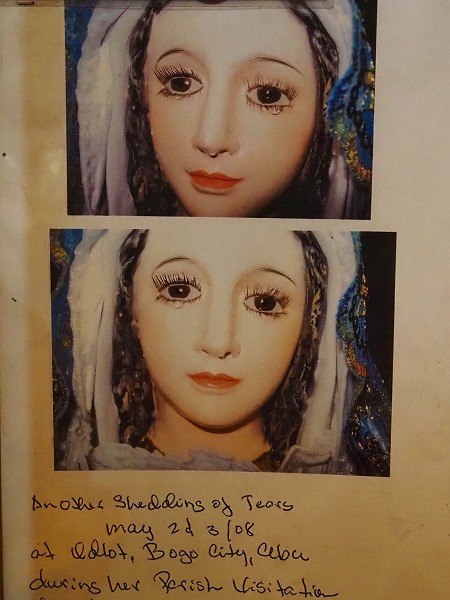 Another Shedding of Tears
May 2d 3/08
at Odlot, Bogo City, Cebu
during her Parish Visitation